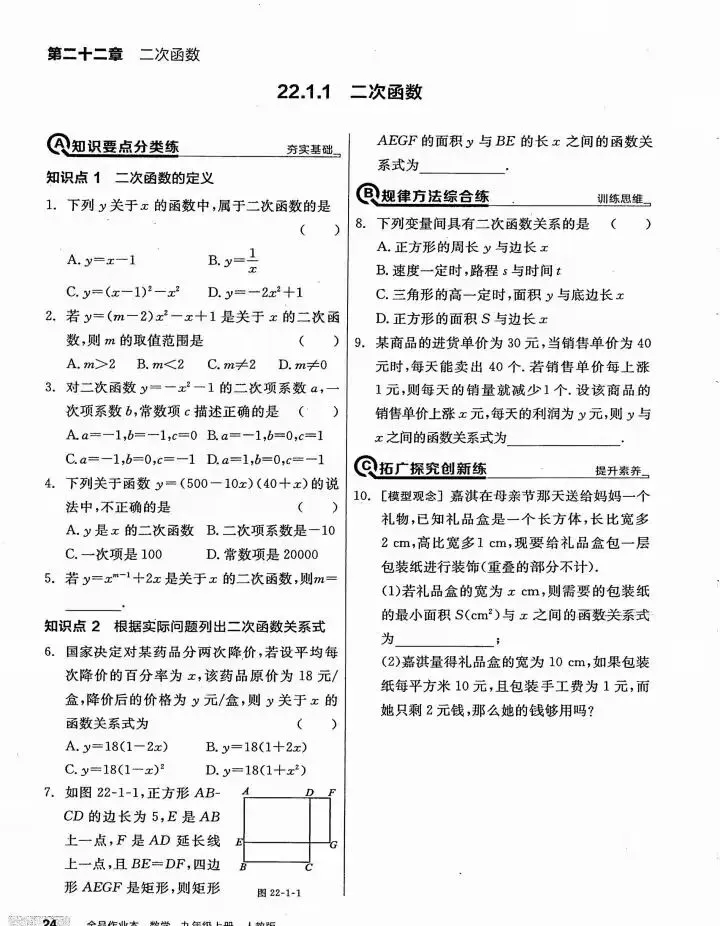 第二十二章 二次函数
22.1.1 二次函数
A 知识要点分类练 夯实基础
知识点 1 二次函数的定义
1. 下列 y 关于 x 的函数中,属于二次函数的是
( )
A. y=x-1 B. y=1/x
C. y=(x-1)²-x² D. y=-2x²+1
2. 若 y=(m-2)x²-x+1 是关于 x 的二次函
数,则 m 的取值范围是 ( )
A. m>2 B. m<2 C. m≠2 D. m≠0
3. 对二次函数 y=-x²-1 的二次项系数 a,一
次项系数 b,常数项 c 描述正确的是 ( )
A. a=-1,b=-1,c=0 B. a=-1,b=0,c=1
C. a=-1,b=0,c=-1 D. a=1,b=0,c=-1
4. 下列关于函数 y=(500-10x)(40+x)的说
法中,不正确的是 ( )
A. y 是 x 的二次函数 B. 二次项系数是-10
C. 一次项是 100 D. 常数项是 20000
5. 若 y=xᵐ⁻¹+2x 是关于 x 的二次函数,则m=
______.
知识点 2 根据实际问题列出二次函数关系式
6. 国家决定对某药品分两次降价,若设平均每
次降价的百分率为 x,该药品原价为 18 元/
盒,降价后的价格为 y 元/盒,则 y 关于 x 的
函数关系式为 ( )
A. y=18(1-2x) B. y=18(1+2x)
C. y=18(1-x)² D. y=18(1+x²)
7. 如图 22-1-1,正方形 AB-
CD 的边长为 5,E 是 AB
上一点,F 是 AD 延长线
上一点,且 BE=DF,四边
形 AEGF 是矩形,则矩形
A D F
E G
B C
图 22-1-1
AEGF 的面积 y 与 BE 的长 x 之间的函数关
系式为________.
B 规律方法综合练 训练思维
8. 下列变量间具有二次函数关系的是 ( )
A. 正方形的周长 y 与边长 x
B. 速度一定时,路程 s 与时间 t
C. 三角形的高一定时,面积 y 与底边长 x
D. 正方形的面积 S 与边长 x
9. 某商品的进货单价为 30 元,当销售单价为 40
元时,每天能卖出 40 个. 若销售单价每上涨
1 元,则每天的销量就减少1 个. 设该商品的
销售单价上涨 x 元,每天的利润为 y 元,则 y 与
x 之间的函数关系式为____________.
C 拓广探究创新练 提升素养
10. [模型观念] 嘉淇在母亲节那天送给妈妈一个
礼物,已知礼品盒是一个长方体,长比宽多
2 cm,高比宽多1 cm,现要给礼品盒包一层
包装纸进行装饰(重叠的部分不计).
(1)若礼品盒的宽为 x cm,则需要的包装纸
的最小面积 S(cm²)与 x 之间的函数关系式
为____________;
(2)嘉淇量得礼品盒的宽为 10 cm,如果包装
纸每平方米 10 元,且包装手工费为 1 元,而
她只剩 2 元钱,那么她的钱够用吗?
24 全品作业本 数学 九年级上册 人教版